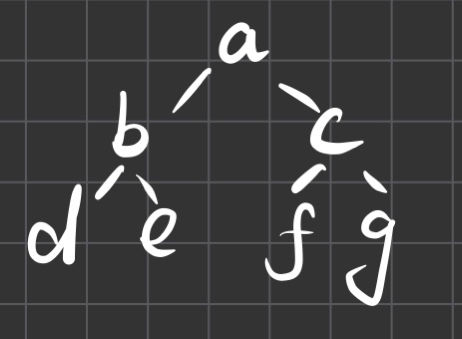 a
b c
d e f g